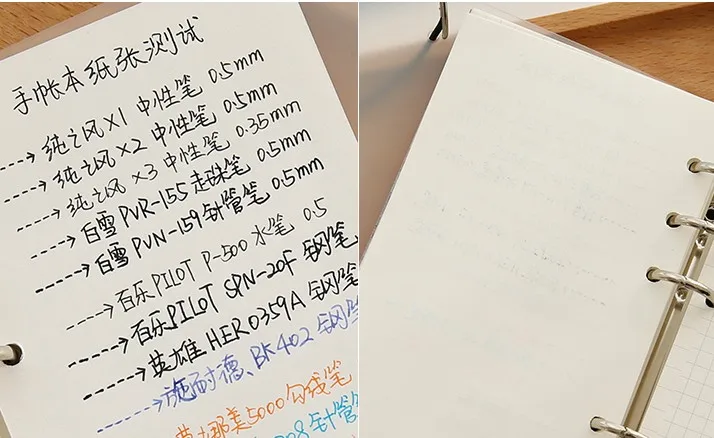 手帐本纸张测试
---->纯之风X1 中性笔 0.5mm
---->纯之风X2 中性笔 0.5mm
---->纯之风X3 中性笔 0.35mm
---->白雪PVR-155走珠笔 0.5mm
---->白雪PVN-159针管笔 0.5mm
---->百乐PILOT P-500水笔 0.5
---->百乐PILOT SPN-20F 钢笔
---->英雄HERO359A 钢笔
---->施耐德、BK402 钢笔
慕娜美3000勾线笔
08针管